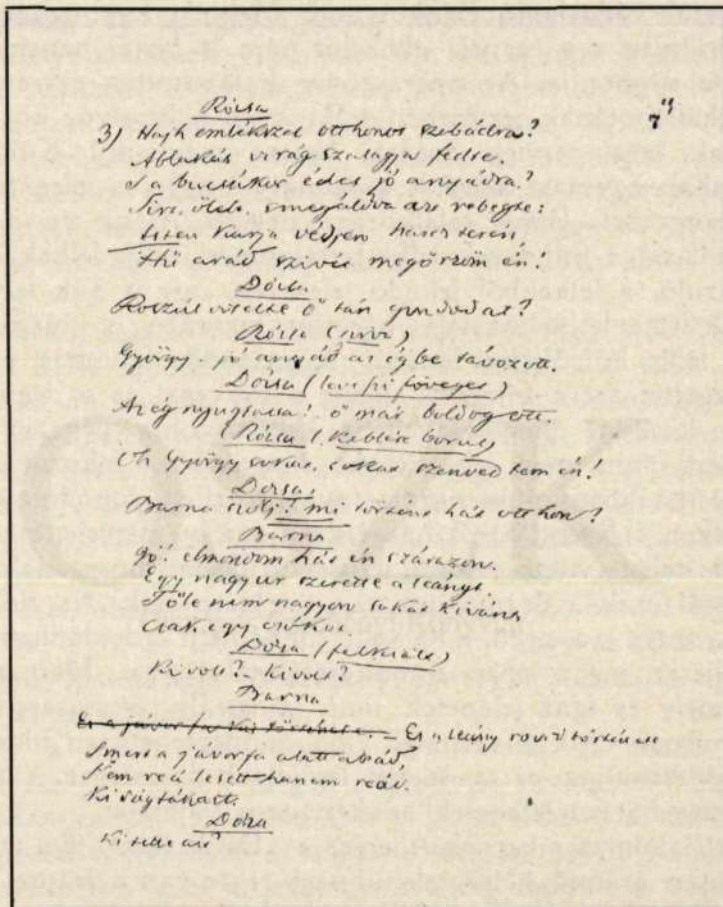 Rózsa
3) Hajh emlékszel otthonos szobádra?
Ablakát virág szalagja fedte.
S a bucsúkor édes jó anyádra?
Sírt, ölelt, s megáldva azt rebegte:
Isten karja védjen harcz terén,
Hü arád szivét megőrzöm én!
Dózsa
Roszúl viselte ő tán gondodat?
Rózsa (sirva)
György - jó anyád az égbe távozott.
Dózsa (leveszi föveget)
Az ég nyugtassa! ő már boldog ott.
(Rózsa (keblére borul)
Oh György sokat, sokat szenvedtem én!
Dózsa
Barna szólj! mi történt hát otthon?
Barna
Jő! elmondom hát én szárazon.
Egy nagy ur szerette a leányt.
Tőle nem nagyon sokat kivánt,
Csak egy csókot.
Dózsa (felkiált)
Ki volt? - Ki volt?
Barna
Ez a jávorfa kis története. - Ez a leány rövid története
S mert a jávorfa alatt arád,
Nem reá lesett hanem reád.
Ki
Dózsa
Ki tette azt